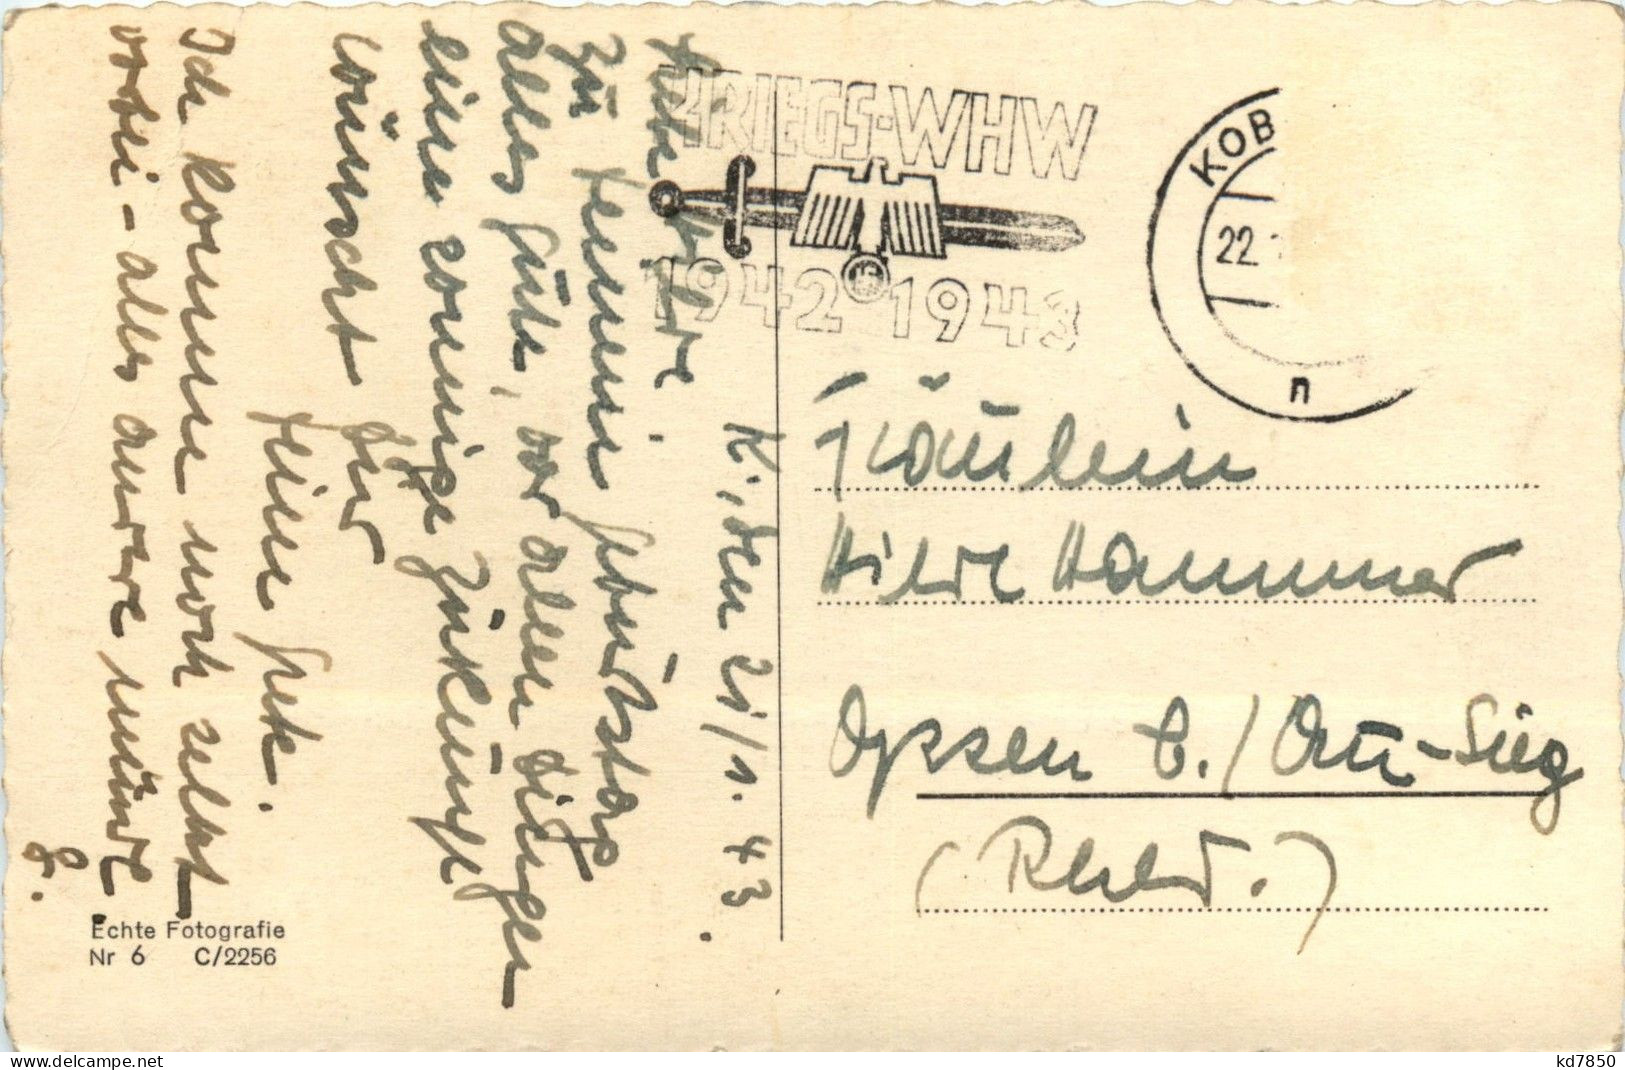 KRIEGS-WHW
1942 1943
KOB
22.
n
K, den 21/1. 43.
Liebe Hilde.
Zu Deinem Geburtstag
alles Gute, vor allen Dingen
eine sonnige Zukunft
wünscht Dir
Deine Grete.
Ich komme noch selbst
vorbei - alles andre mündl.
G.
Fräulein
Hilde Hammer
Opssen b./ Au-Sieg
(Rhld.)
Echte Fotografie
Nr 6 C/2256
www.delcampe.net
kd7850